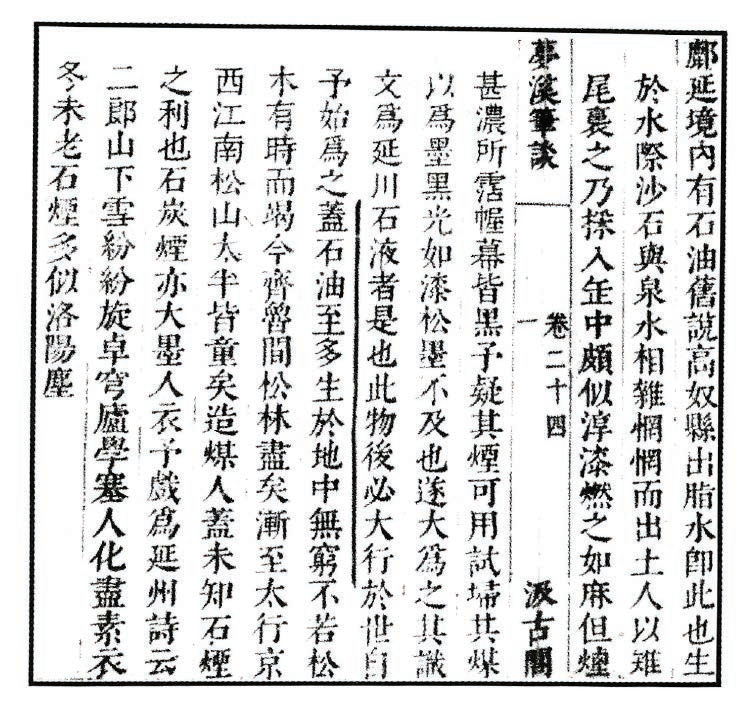 鄜延境內有石油舊說高奴縣出脂水卽此也生
於水際沙石與泉水相雜惘惘而出土人以雉
尾裛之乃採入缶中頗似淳漆燃之如麻但煙
夢溪筆談 卷二十四 一 汲古閣
甚濃所霑幄幕皆黑予疑其煙可用試埽其煤
以爲墨黑光如漆松墨不及也遂大爲之其識
文爲延川石液者是也此物後必大行於世自
予始爲之蓋石油至多生於地中無窮不若松
木有時而竭今齊魯間松林盡矣漸至太行京
西江南松山太半皆童矣造煤人蓋未知石煙
之利也石炭煙亦大墨人衣予戲爲延州詩云
二郎山下雪紛紛旋卓穹廬學塞人化盡素衣
冬未老石煙多似洛陽塵